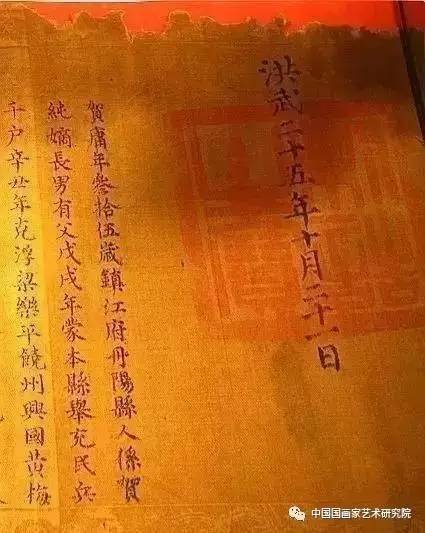 洪武二十五年十月二十一日
賀庸年叄拾伍歲鎮江府丹陽縣人係賀
純嫡長男有父戊戌年蒙本縣舉充民兵
千户辛丑年克浮梁樂平饒州興國黃梅
中国国画家艺术研究院